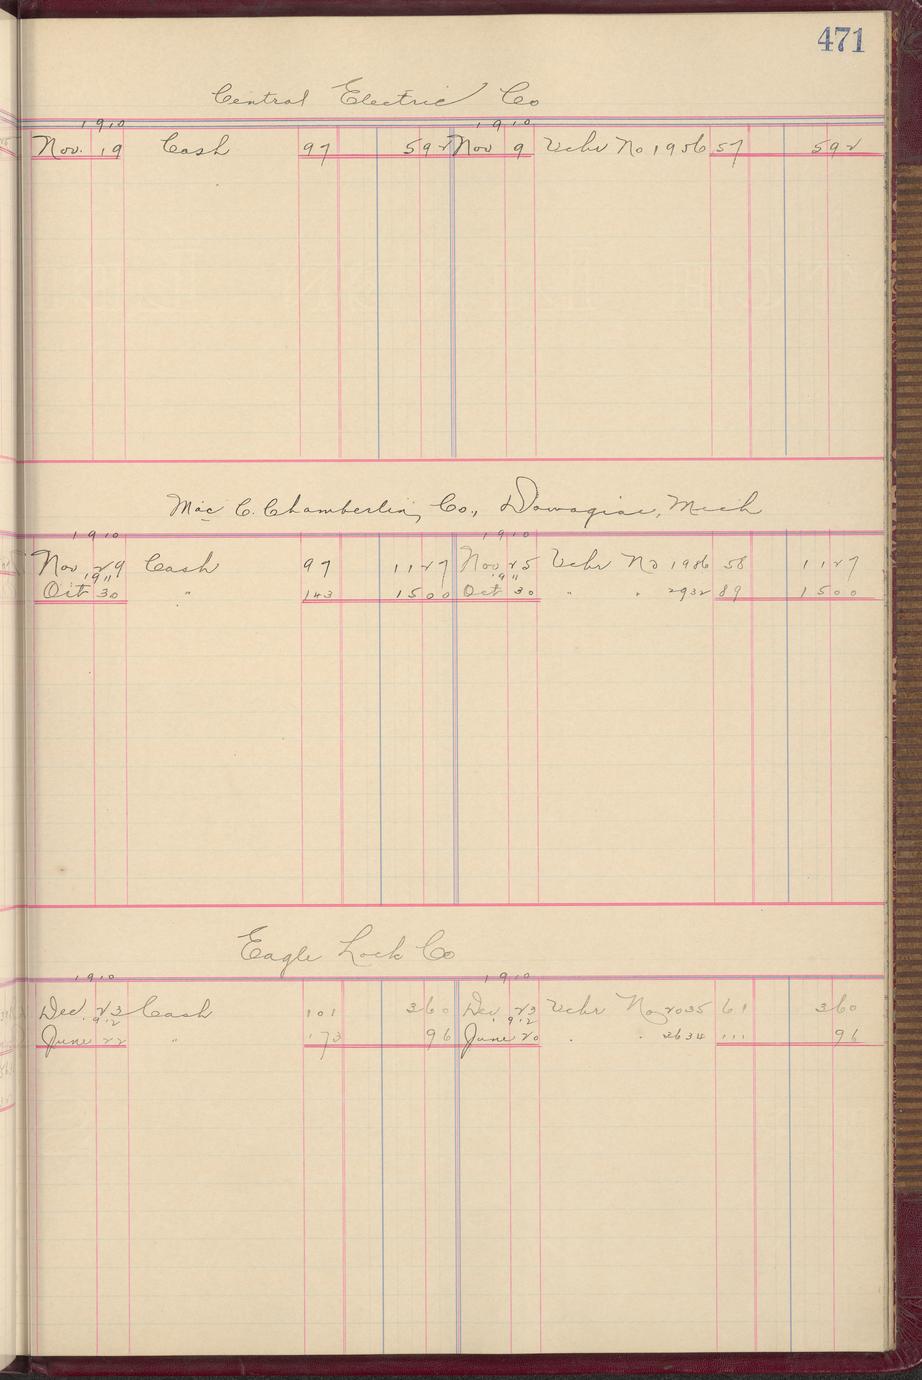 471
Central Electric Co
1910 1910
Nov. 19 Cash 97 592 Nov 9 Vchr No 1956 57 592
Mac C. Chamberlin, Co., Dowagiac, Mich
1910 1910
Nov 29 Cash 97 1127 Nov 25 Vchr No 1986 58 1127
1911 1911
Oct 30 " 143 1500 Oct 30 " " 2932 89 1500
Eagle Lock Co
1910 1910
Dec. 23 Cash 101 360 Dec. 23 Vchr No 2035 61 360
1912 1912
June 22 " 173 96 June 20 " " 3634 111 96